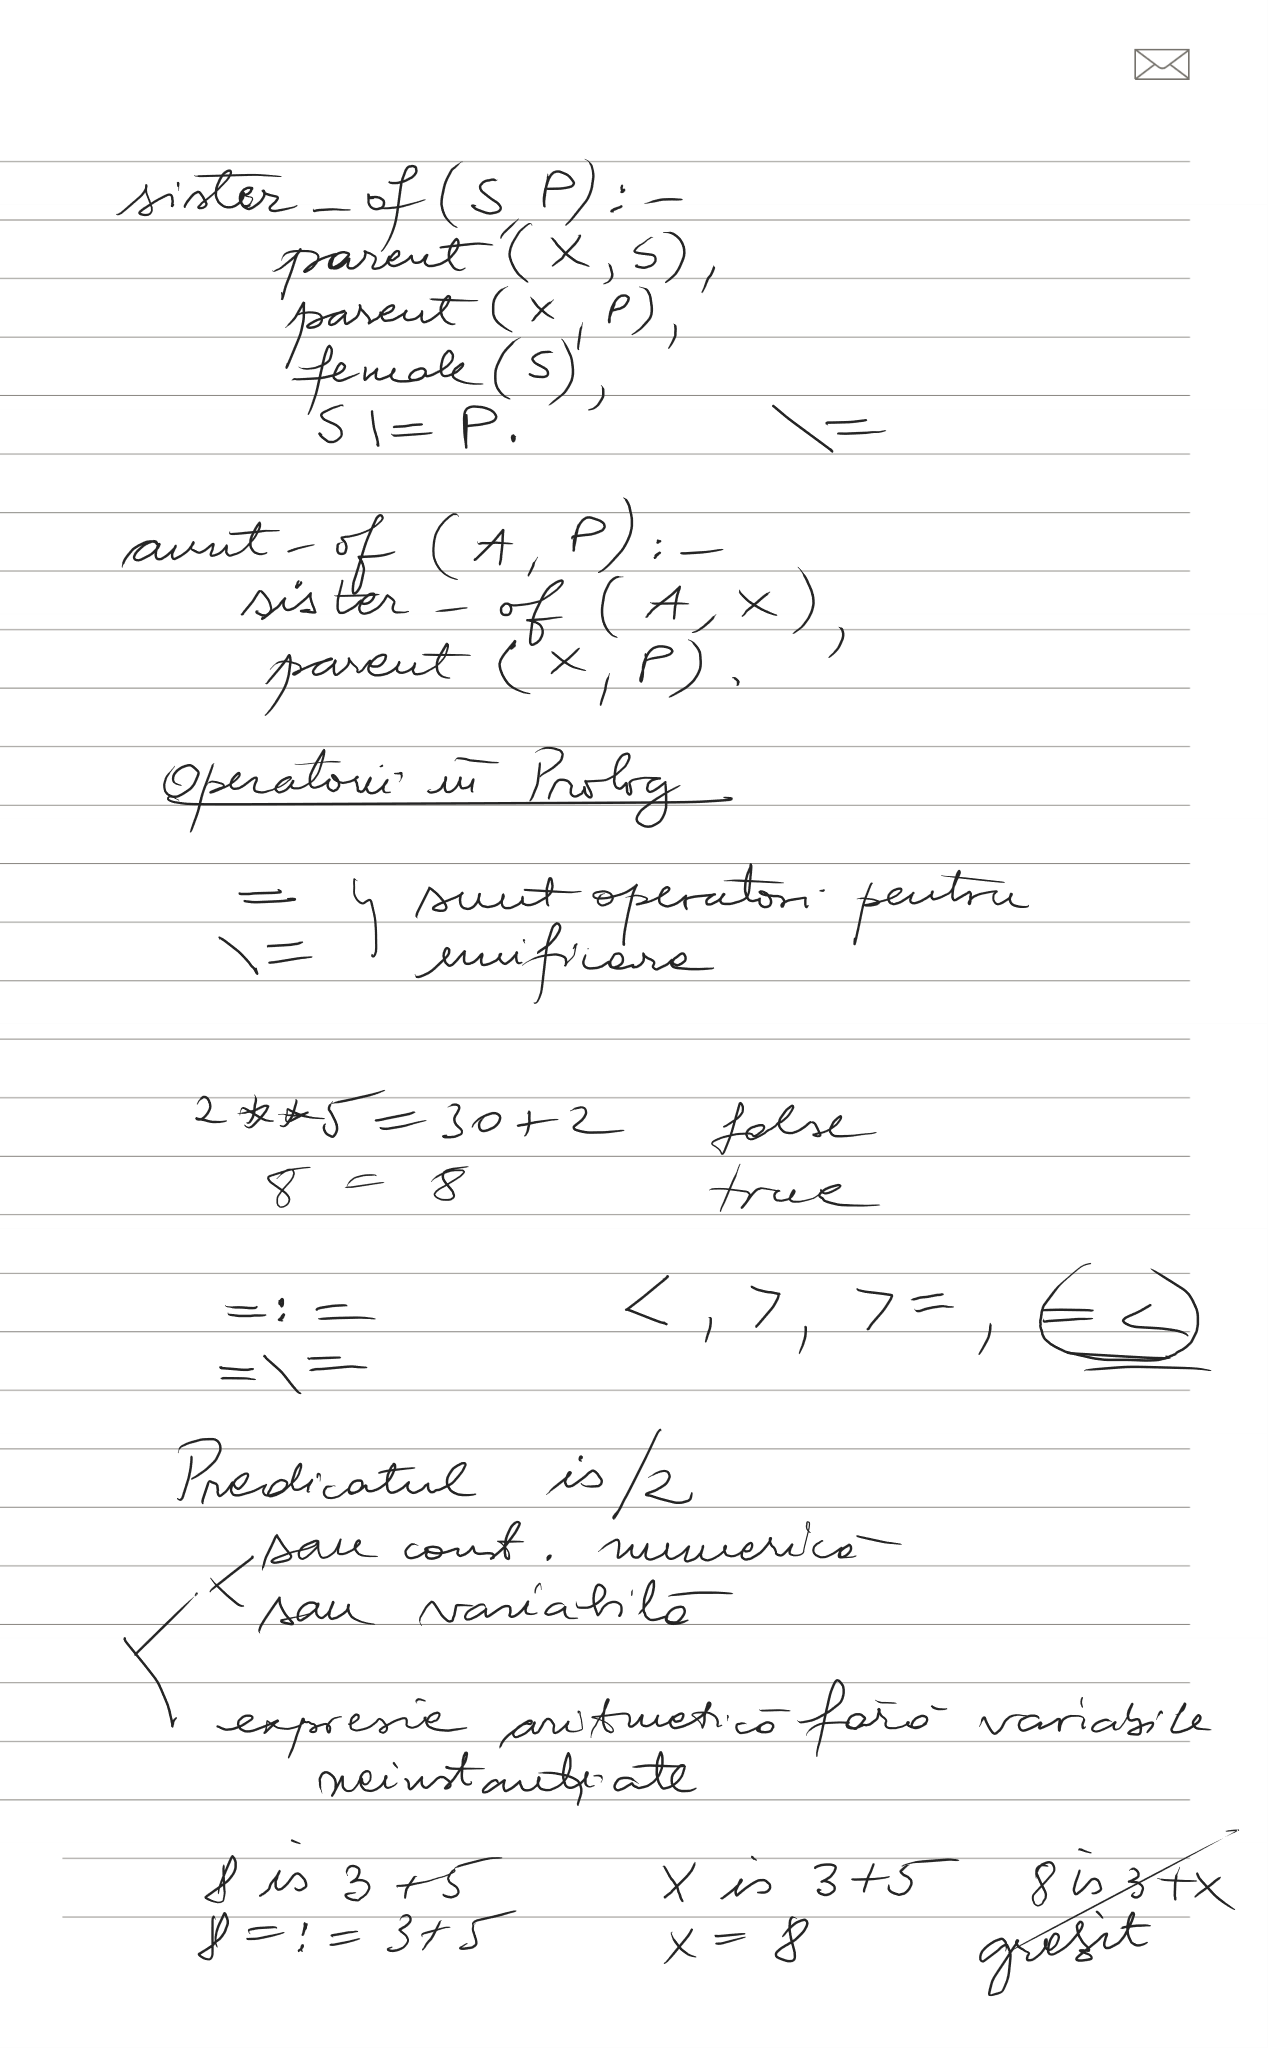 sister_of(S, P):-
parent(X, S),
parent(X, P),
female(S),
S \= P. \=
aunt-of (A, P):-
sister-of (A, X),
parent (X, P).
Operatorii în Prolog
= } sunt operatori pentru
\= unificare
2**5 = 30+2 false
8 = 8 true
=:= <, >, >=, =<
=\=
Predicatul is/2
sau const. numerică
sau variabilă
expresie aritmetică fără variabile
neinstanțiate
8 is 3+5 X is 3+5 8 is 3+X
8 =:= 3+5 X = 8 greșit